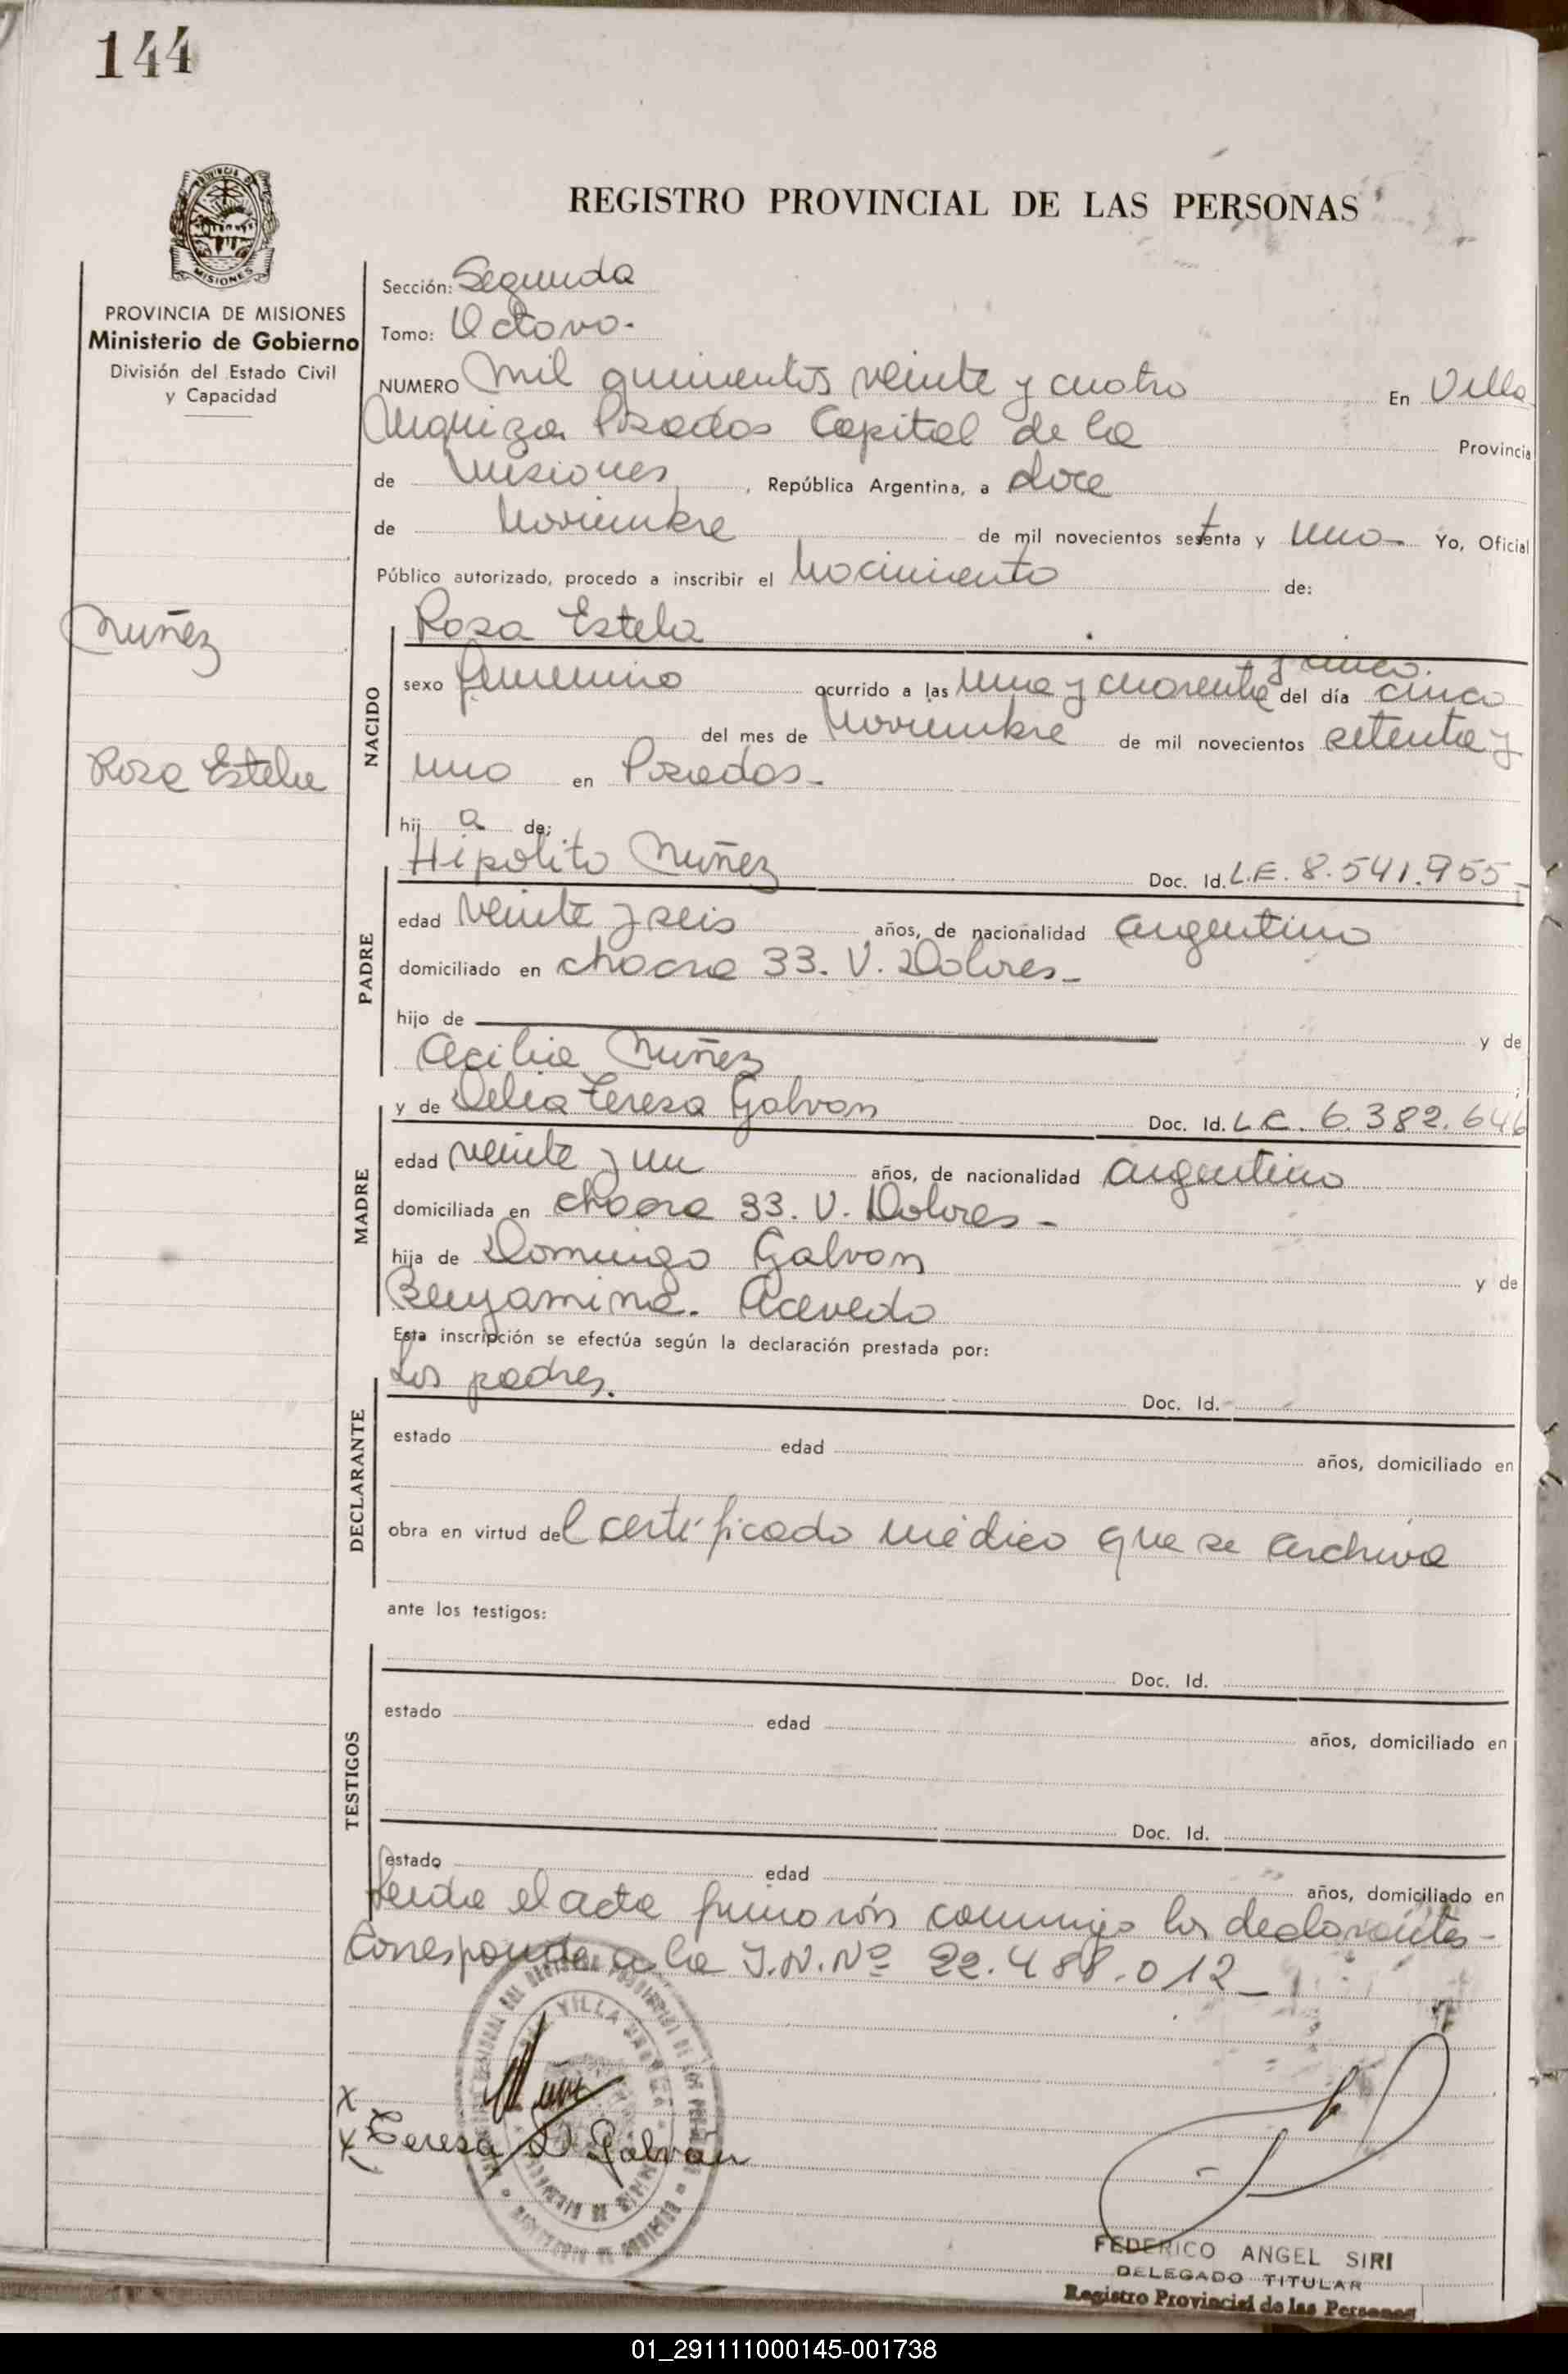 144
REGISTRO PROVINCIAL DE LAS PERSONAS
PROVINCIA DE
MISIONES
PROVINCIA DE MISIONES
Ministerio de Gobierno
División del Estado Civil
y Capacidad
Nuñez
Rosa Estela
Sección: Segunda
Tomo: Octavo.
NUMERO Mil quinientos veinte y cuatro En Villa
Urquiza Posadas Capital de la Provincia
de Misiones, República Argentina, a doce
de Noviembre de mil novecientos setenta y uno Yo, Oficial
Público autorizado, procedo a inscribir el Nacimiento de:
NACIDO
Rosa Estela
y cinco.
sexo femenino ocurrido a las una y cuarenta del día cinco
del mes de Noviembre de mil novecientos setenta y
uno en Posadas.
hij a de:
PADRE
Hipolito Nuñez Doc. Id. L.E. 8.541.955
edad veinte y seis años, de nacionalidad argentino
domiciliado en chacra 33. V. Dolores
hijo de y de
Cecilia Nuñez
MADRE
y de Delia Teresa Galvan Doc. Id. L.C. 6.382.646
edad veinte y un años, de nacionalidad argentino
domiciliada en chacra 33. V. Dolores
hija de Domingo Galvan y de
Benjamina. Acevedo
Esta inscripción se efectúa según la declaración prestada por:
DECLARANTE
Los padres. Doc. Id.
estado edad años, domiciliado en
obra en virtud del certificado médico que se archiva
ante los testigos:
TESTIGOS
Doc. Id.
estado edad años, domiciliado en
Doc. Id.
estado edad años, domiciliado en
Leida el acta firmaron conmigo los declarantes
Corresponde a la I.N.Nº 22.488.012
VILLA URQUIZA
x
x Teresa D Galván
FEDERICO ANGEL SIRI
DELEGADO TITULAR
Registro Provincial de las Personas
01_291111000145-001738